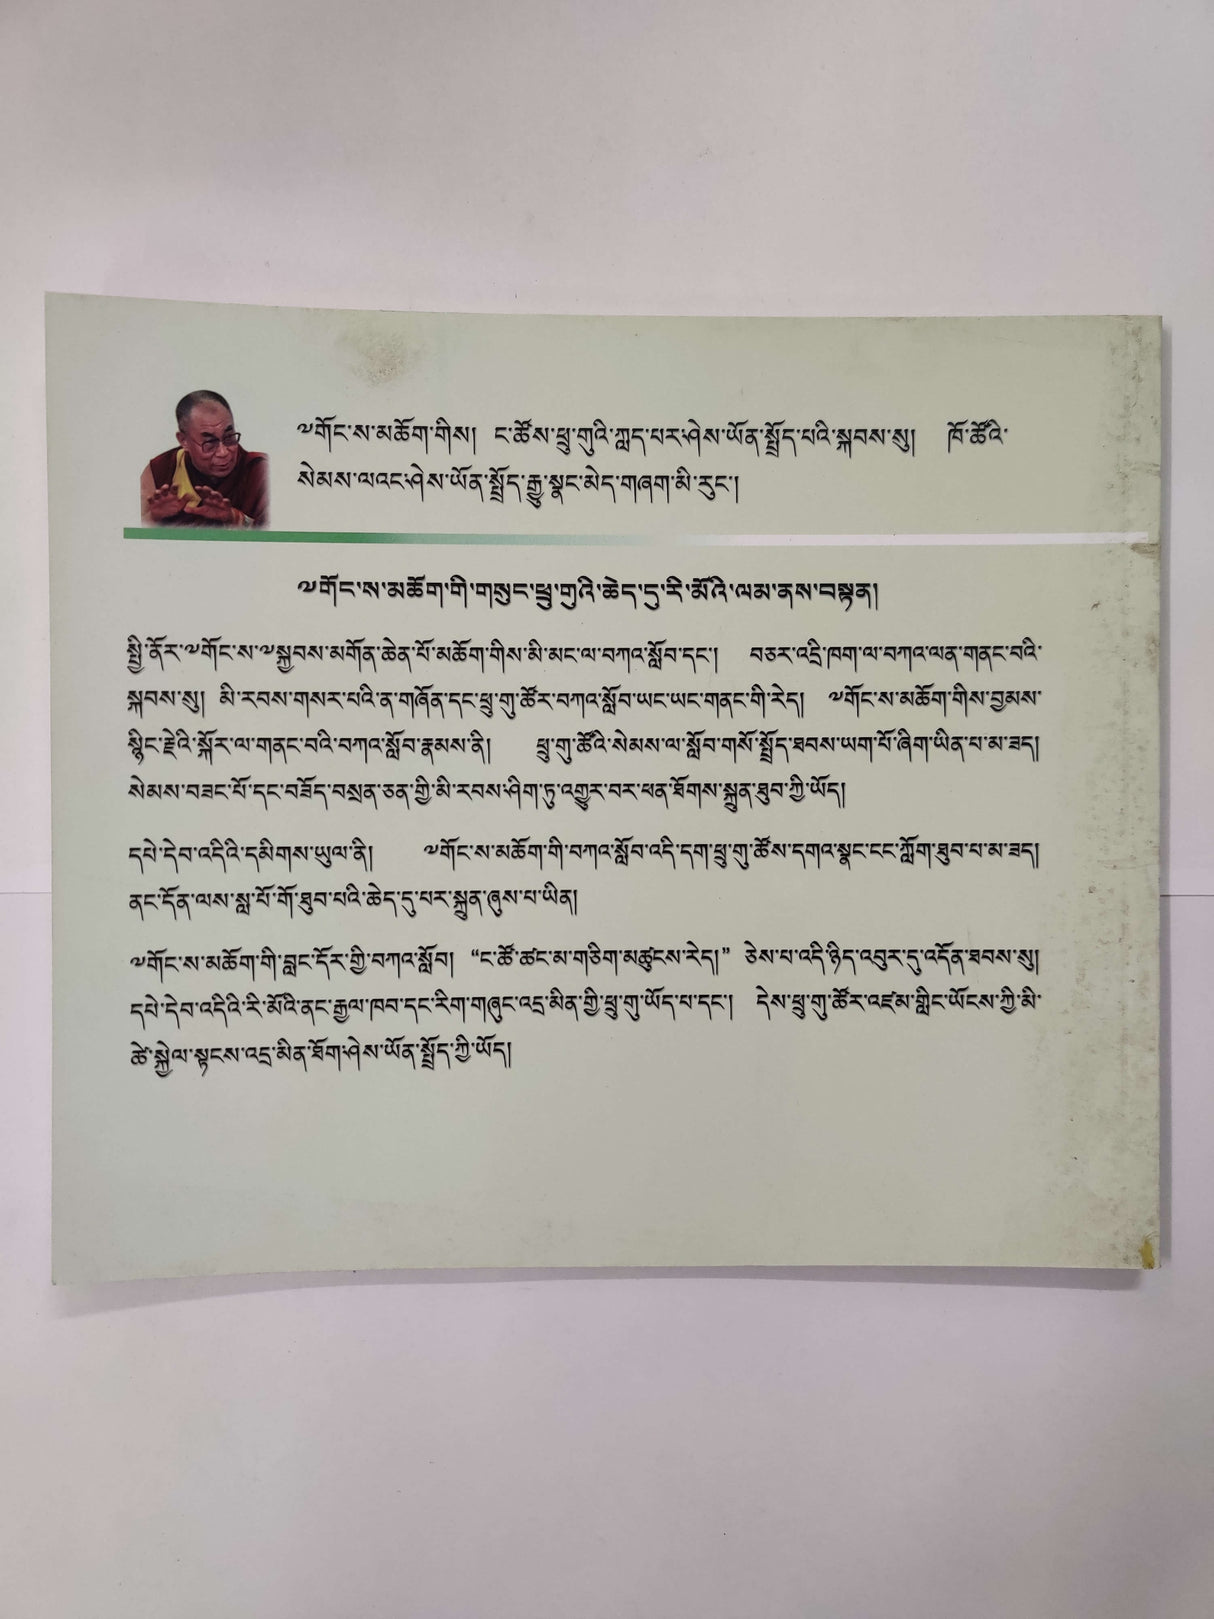 ༧གོང་ས་མཆོག་གིས། ང་ཚོས་ཕྲུ་གུའི་ཀླད་པར་ཤེས་ཡོན་སྤྲོད་པའི་སྐབས་སུ། ཁོ་ཚོའི་
སེམས་ལའང་ཤེས་ཡོན་སྤྲོད་རྒྱུ་སྣང་མེད་གཞག་མི་རུང་།
༧གོང་ས་མཆོག་གི་གསུང་ཕྲུ་གུའི་ཆེད་དུ་རི་མོའི་ལམ་ནས་བསྟན།
སྤྱི་ནོར་༧གོང་ས་༧སྐྱབས་མགོན་ཆེན་པོ་མཆོག་གིས་མི་མང་ལ་བཀའ་སློབ་དང་། བཅར་འདྲི་ཁག་ལ་བཀའ་ལན་གནང་བའི་
སྐབས་སུ། མི་རབས་གསར་པའི་ན་གཞོན་དང་ཕྲུ་གུ་ཚོར་བཀའ་སློབ་ཡང་ཡང་གནང་གི་རེད། ༧གོང་ས་མཆོག་གིས་བྱམས་
སྙིང་རྗེའི་སྐོར་ལ་གནང་བའི་བཀའ་སློབ་རྣམས་ནི། ཕྲུ་གུ་ཚོའི་སེམས་ལ་སློབ་གསོ་སྤྲོད་ཐབས་ཡག་པོ་ཞིག་ཡིན་པ་མ་ཟད།
སེམས་བཟང་པོ་དང་བཟོད་བསྲན་ཅན་གྱི་མི་རབས་ཤིག་ཏུ་འགྱུར་བར་ཕན་ཐོགས་སྐྲུན་ཐུབ་ཀྱི་ཡོད།
དཔེ་དེབ་འདིའི་དམིགས་ཡུལ་ནི། ༧གོང་ས་མཆོག་གི་བཀའ་སློབ་འདི་དག་ཕྲུ་གུ་ཚོས་དགའ་སྣང་ངང་ཀློག་ཐུབ་པ་མ་ཟད།
ནང་དོན་ལས་སླ་པོ་གོ་ཐུབ་པའི་ཆེད་དུ་པར་སྐྲུན་ཞུས་པ་ཡིན།
༧གོང་ས་མཆོག་གི་བླང་དོར་གྱི་བཀའ་སློབ། “ང་ཚོ་ཚང་མ་གཅིག་མཚུངས་རེད།” ཅེས་པ་འདི་ཉིད་འབུར་དུ་འདོན་ཐབས་སུ།
དཔེ་དེབ་འདིའི་རི་མོའི་ནང་རྒྱལ་ཁབ་དང་རིག་གཞུང་འདྲ་མིན་གྱི་ཕྲུ་གུ་ཡོད་པ་དང་། དེས་ཕྲུ་གུ་ཚོར་འཛམ་གླིང་ཡོངས་ཀྱི་མི་
ཚེ་སྐྱེལ་སྟངས་འདྲ་མིན་ཐོག་ཤེས་ཡོན་སྤྲོད་ཀྱི་ཡོད།